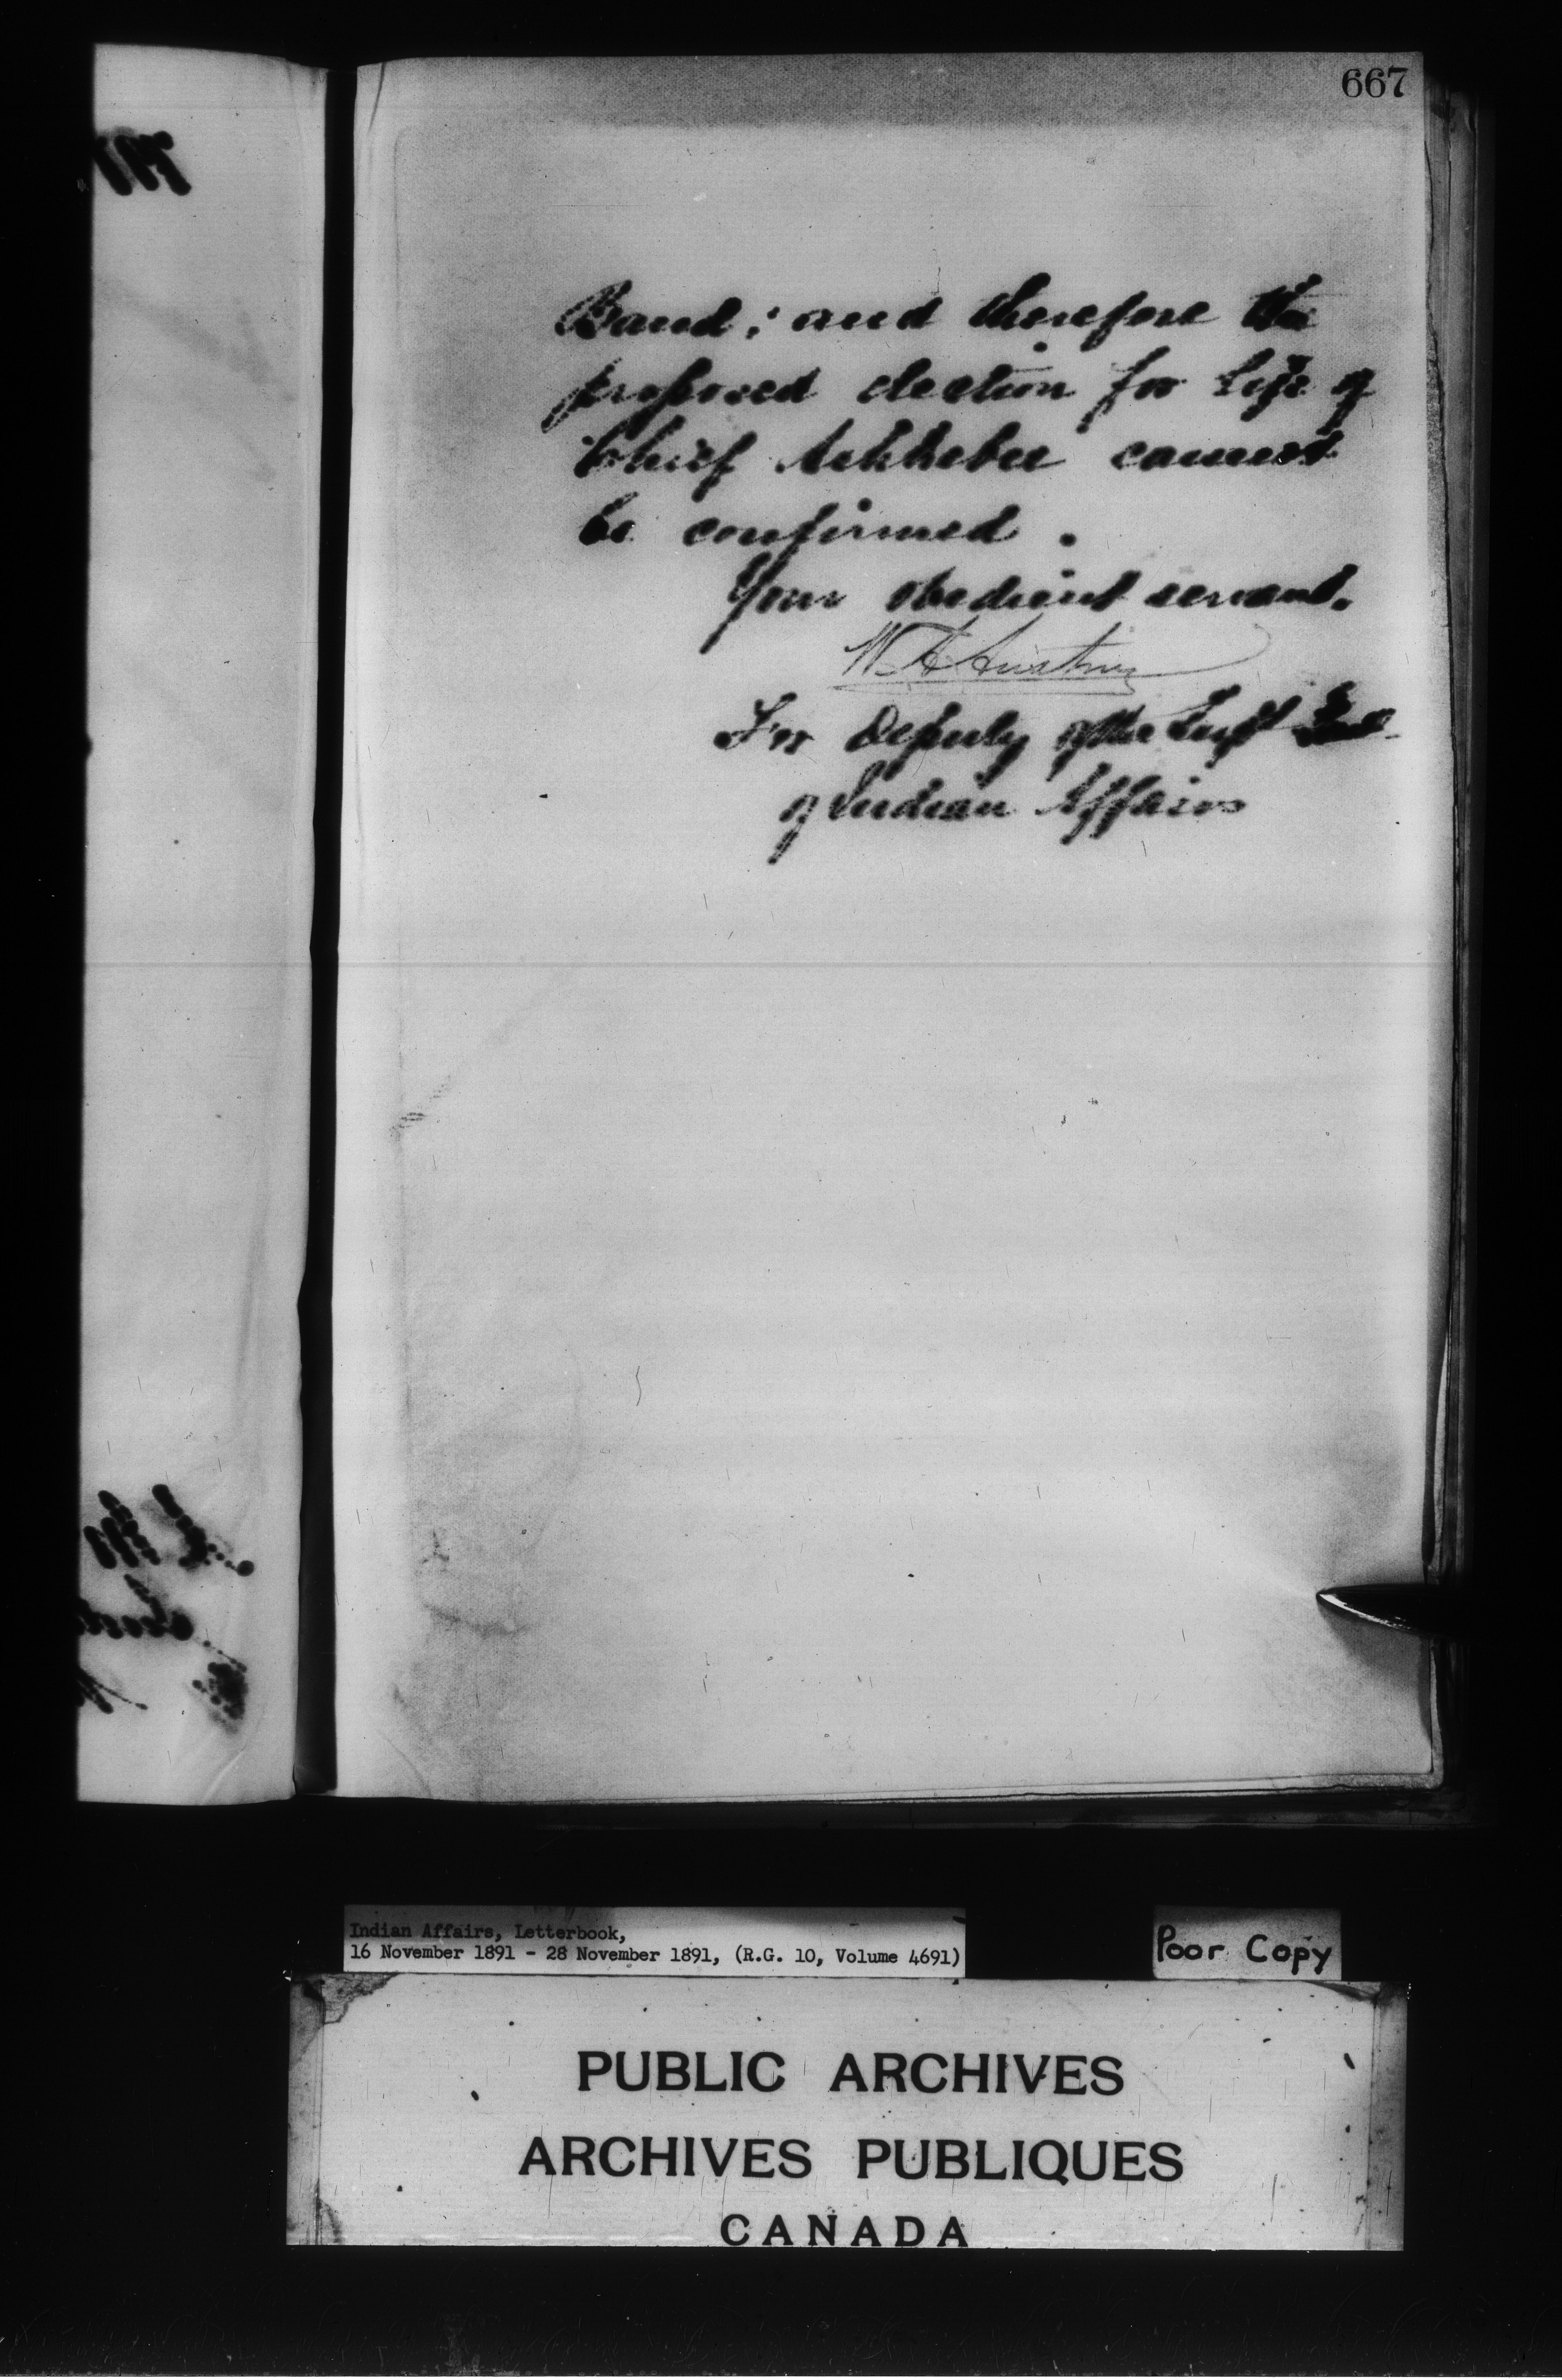 667
Band; and therefore the
proposed election for life of
Chief Ashkebee cannot
be confirmed.
Your obedient servant.
W. A. Austin
For Deputy of the Supt Genl
of Indian Affairs
Indian Affairs, Letterbook,
16 November 1891 - 28 November 1891, (R.G. 10, Volume 4691)
Poor Copy
PUBLIC ARCHIVES
ARCHIVES PUBLIQUES
CANADA